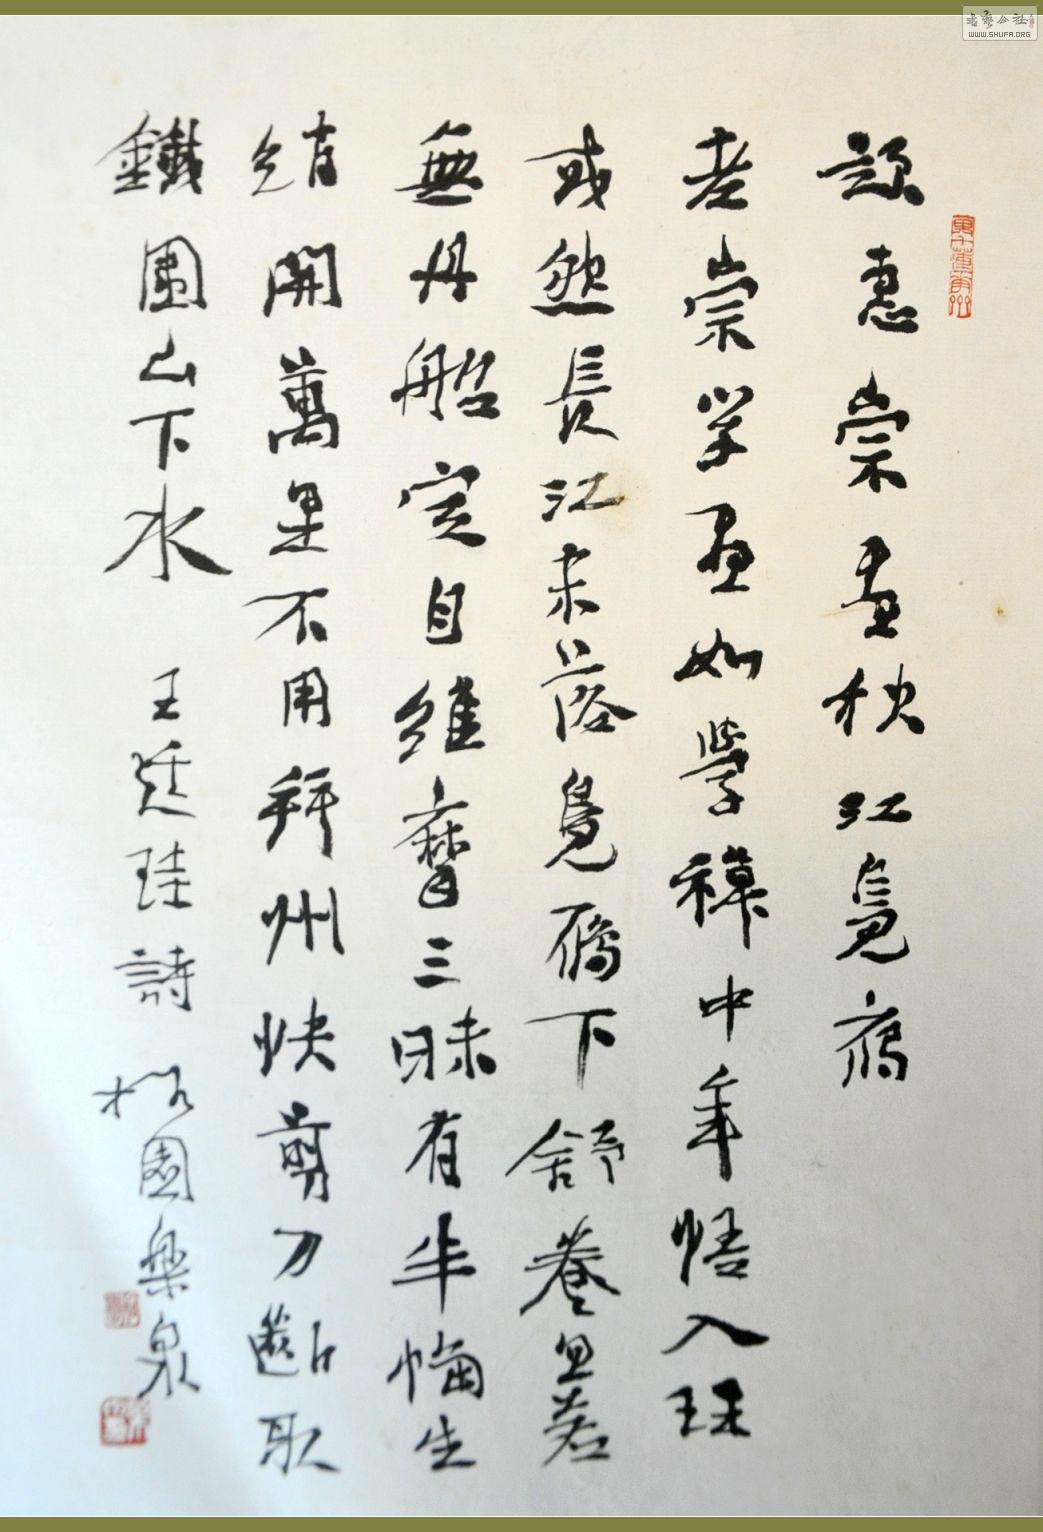 題惠崇畫秋江鳧鴈
老崇学畫如學禪中年悟入理
或然長江未落鳧鴈下舒卷忽若
無丹鉛定自維摩三昧有半幅生
綃開萬里不用并州快剪刀斷取
鐵圍山下水 王廷珪詩 松園樂泉
書藝公社
WWW.SHUFA.ORG